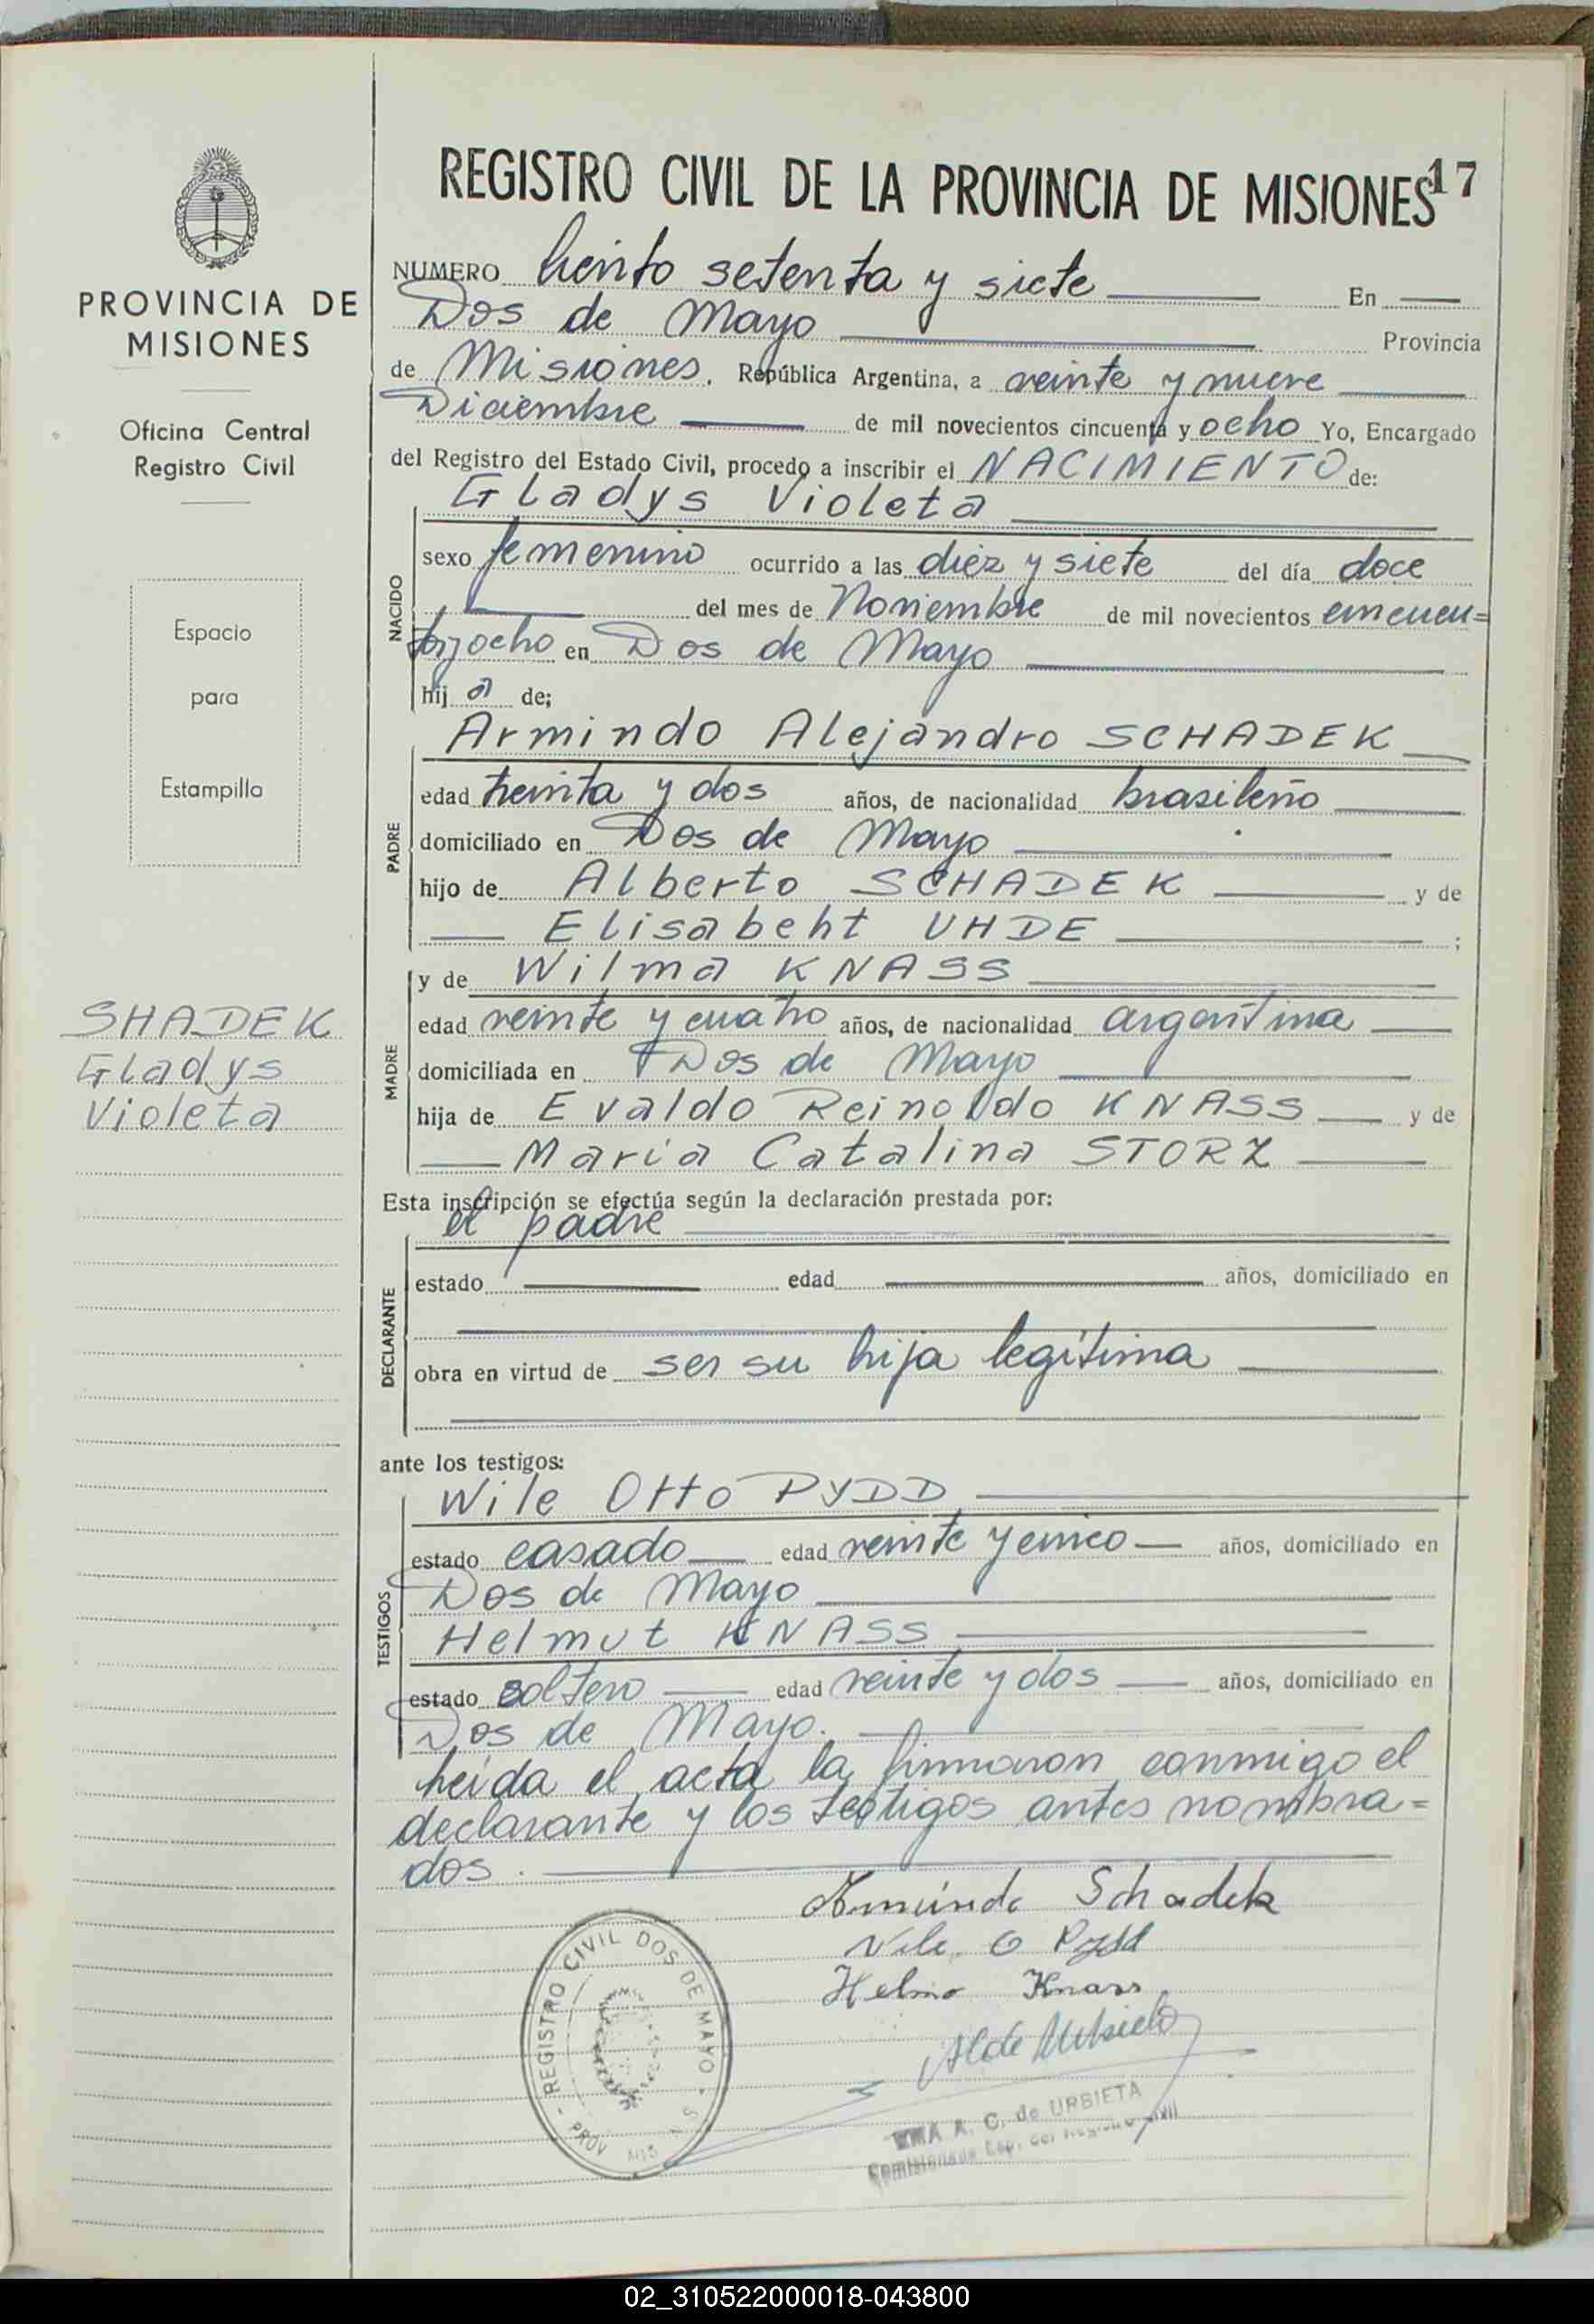 REGISTRO CIVIL DE LA PROVINCIA DE MISIONES 17
PROVINCIA DE
MISIONES
Oficina Central
Registro Civil
Espacio
para
Estampilla
SHADEK
Gladys
Violeta
NUMERO Ciento setenta y siete En
Dos de Mayo Provincia
de Misiones, República Argentina, a veinte y nueve
Diciembre de mil novecientos cincuenta y ocho Yo, Encargado
del Registro del Estado Civil, procedo a inscribir el NACIMIENTO de:
NACIDO
Gladys Violeta
sexo femenino ocurrido a las diez y siete del día doce
del mes de Noviembre de mil novecientos cincuen=
ta y ocho en Dos de Mayo
hij a de;
PADRE
Armindo Alejandro SCHADEK
edad treinta y dos años, de nacionalidad brasileño
domiciliado en Dos de Mayo
hijo de Alberto SCHADEK y de
Elisabeht UHDE ;
MADRE
y de Wilma KNASS
edad veinte y cuatro años, de nacionalidad argentina
domiciliada en Dos de Mayo
hija de Evaldo Reinoldo KNASS y de
María Catalina STORZ
Esta inscripción se efectúa según la declaración prestada por:
DECLARANTE
el padre
estado edad años, domiciliado en
obra en virtud de ser su hija legítima
ante los testigos:
TESTIGOS
Wile Otto PYDD
estado casado edad veinte y cinco años, domiciliado en
Dos de Mayo
Helmut KNASS
estado soltero edad veinte y dos años, domiciliado en
Dos de Mayo.
Leída el acta la firmaron conmigo el
declarante y los testigos antes nombra=
dos.
Armindo Schadek
Vile. O Pydd
Helmo Knass
REGISTRO CIVIL DOS DE MAYO
PROV
A. C. de URBIETA
02_310522000018-043800